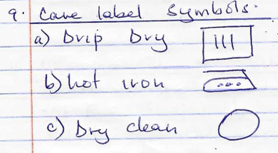 9. Care label Symbols.
a) Drip Dry
b) hot iron
c) Dry clean